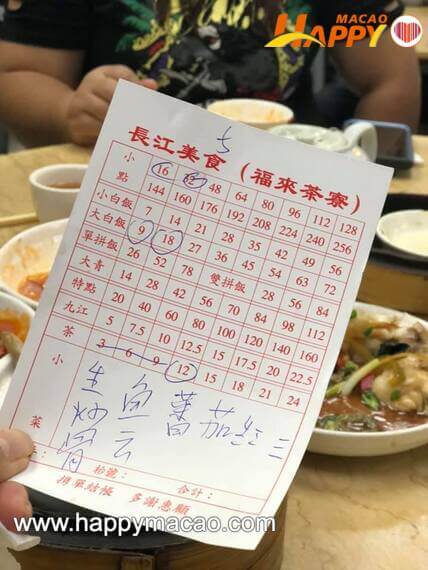 MACAO
HAPPY
5
長江美食（福來茶寮）
小點 16 48 64 80 96 112 128
144 160 176 192 208 224 240 256
小白飯 7 14 21 28 35 42 49 56
大白飯 9 18 27 36 45 54 63 72
單拼飯 26 52 78 雙拼飯 28 56 84
大青 14 28 42 56 70 84 98 112
特點 20 40 60 80 100 120 140 160
九江 5 7.5 10 12.5 15 17.5 20 22.5
茶 3 6 9 12 15 18 21 24
小菜
生魚 蕃茄
炒
枱號： 合計：
攜單結帳 多謝惠顧
www.happymacao.com